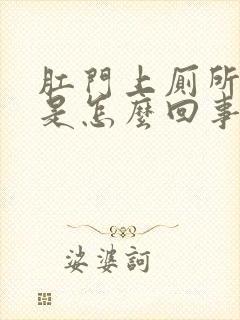 肛門上厠所
是怎麼回事
娑婆訶